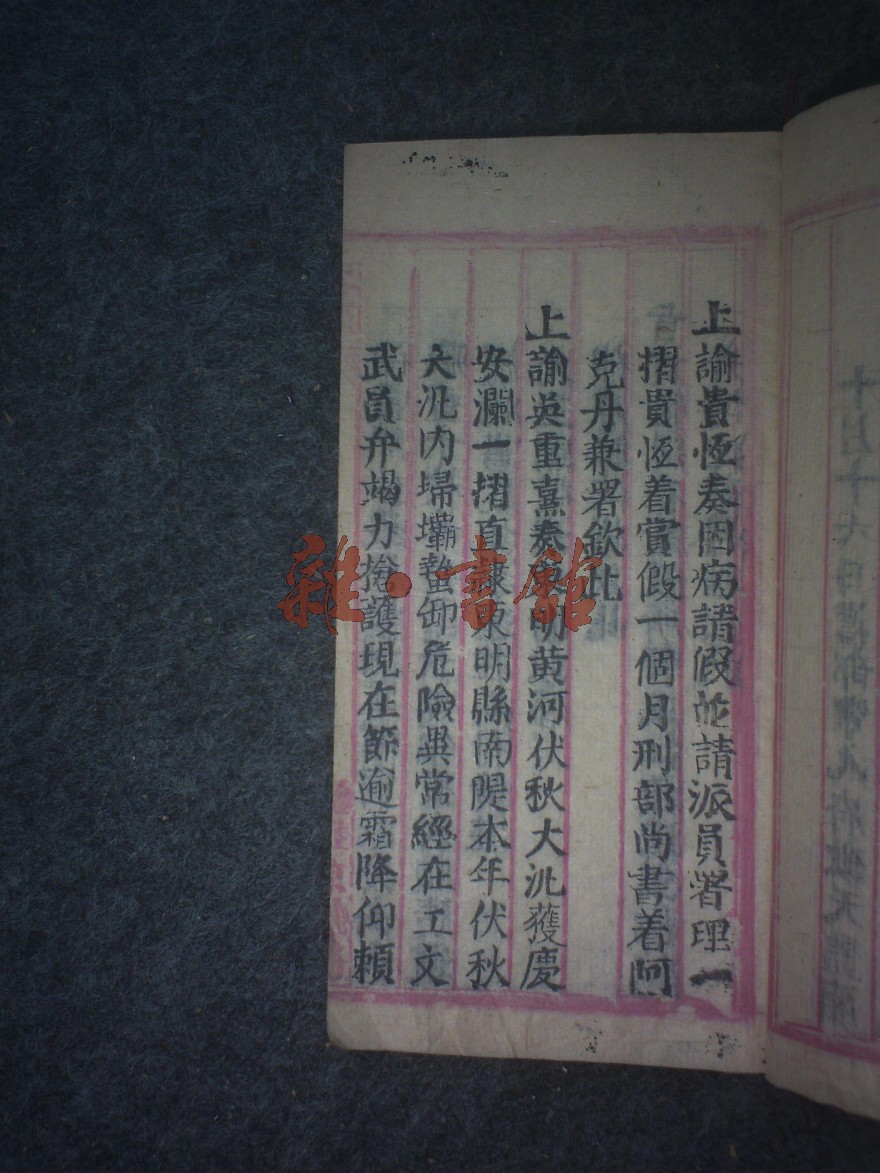 上諭貴恆奏因病請假並請派員署理一
摺貴恆着賞假一個月刑部尚書着阿
克丹兼署欽此
上諭吳重熹奏東明黄河伏秋大汛獲慶
安瀾一摺直隷東明縣南隄本年伏秋
大汛内埽壩蟄卸危險異常經在工文
武員弁竭力搶護現在節逾霜降仰賴
十月十六日
雜·書館